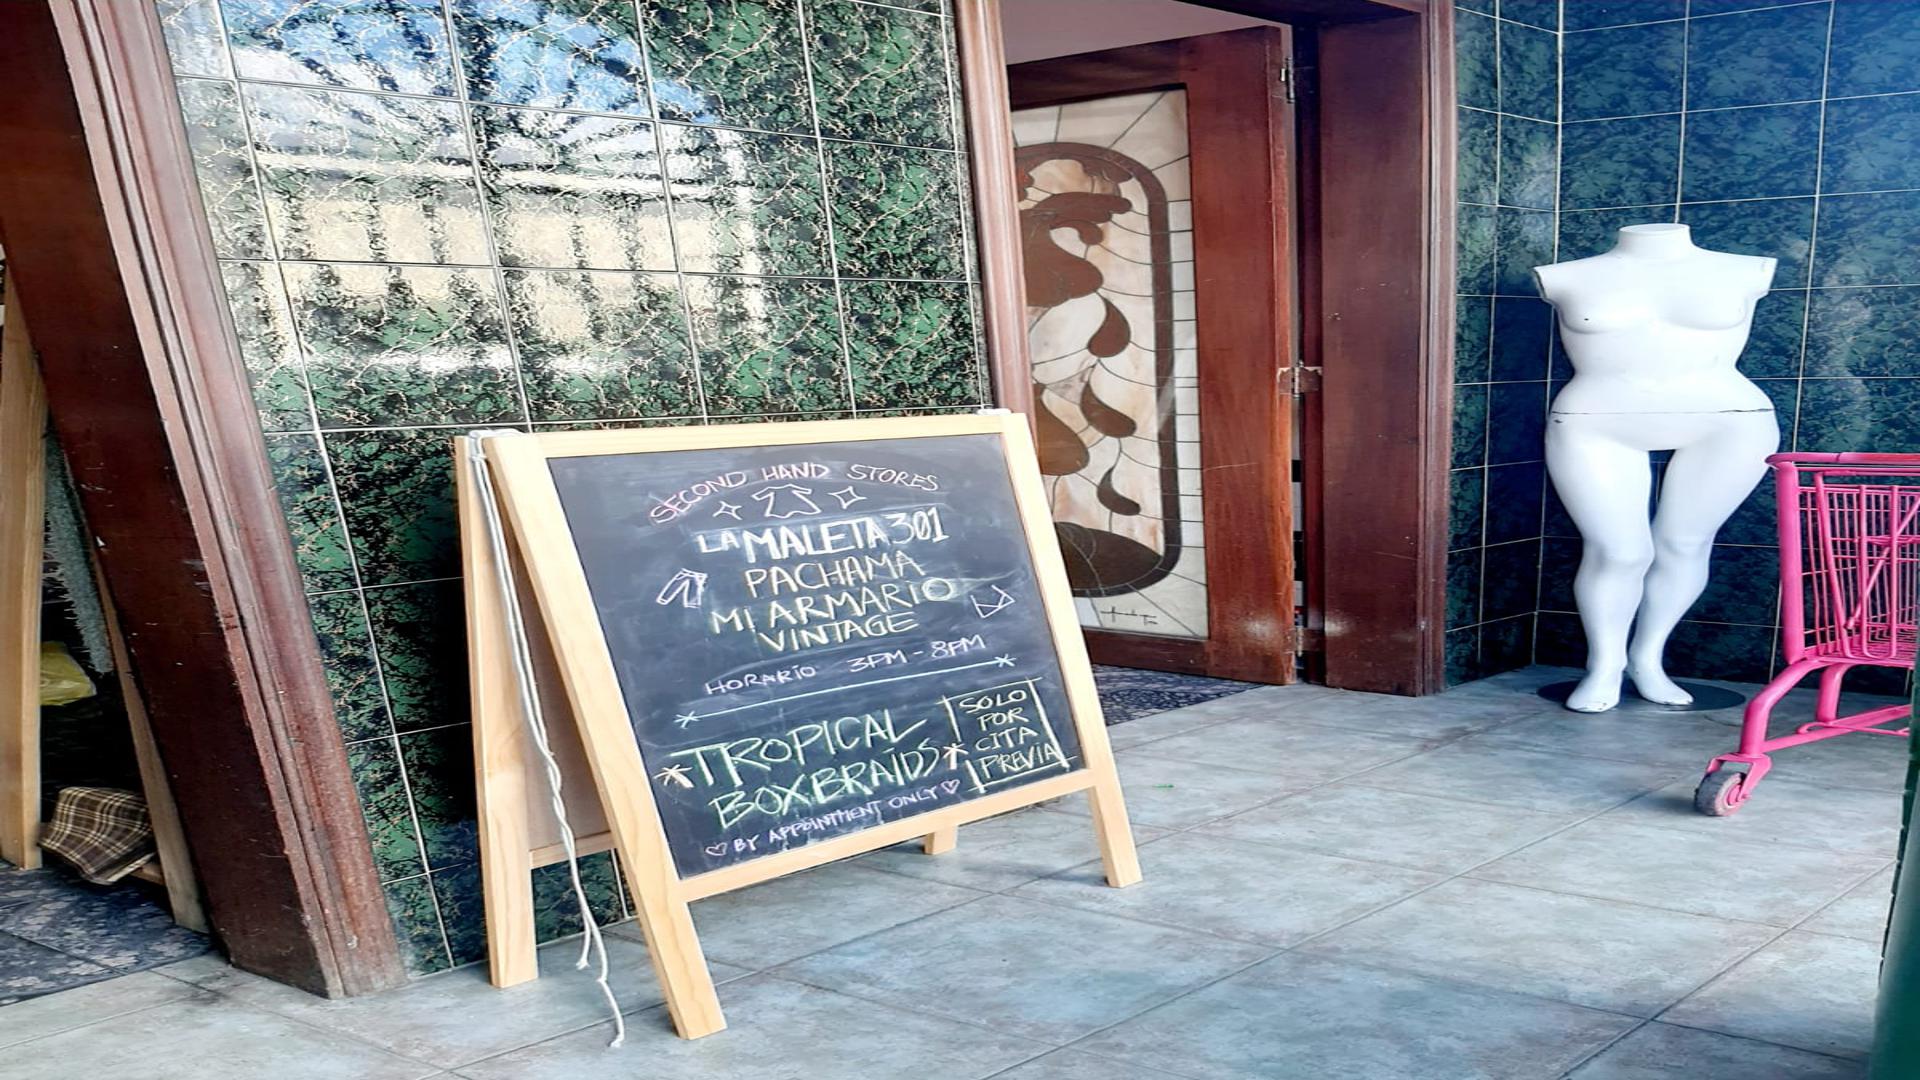 SECOND HAND STORES
LA MALETA 301
PACHAMA
MI ARMARIO
VINTAGE
HORARIO 3PM - 8PM
TROPICAL
BOXBRAIDS
BY APPOINTMENT ONLY
SOLO
POR
CITA
PREVIA